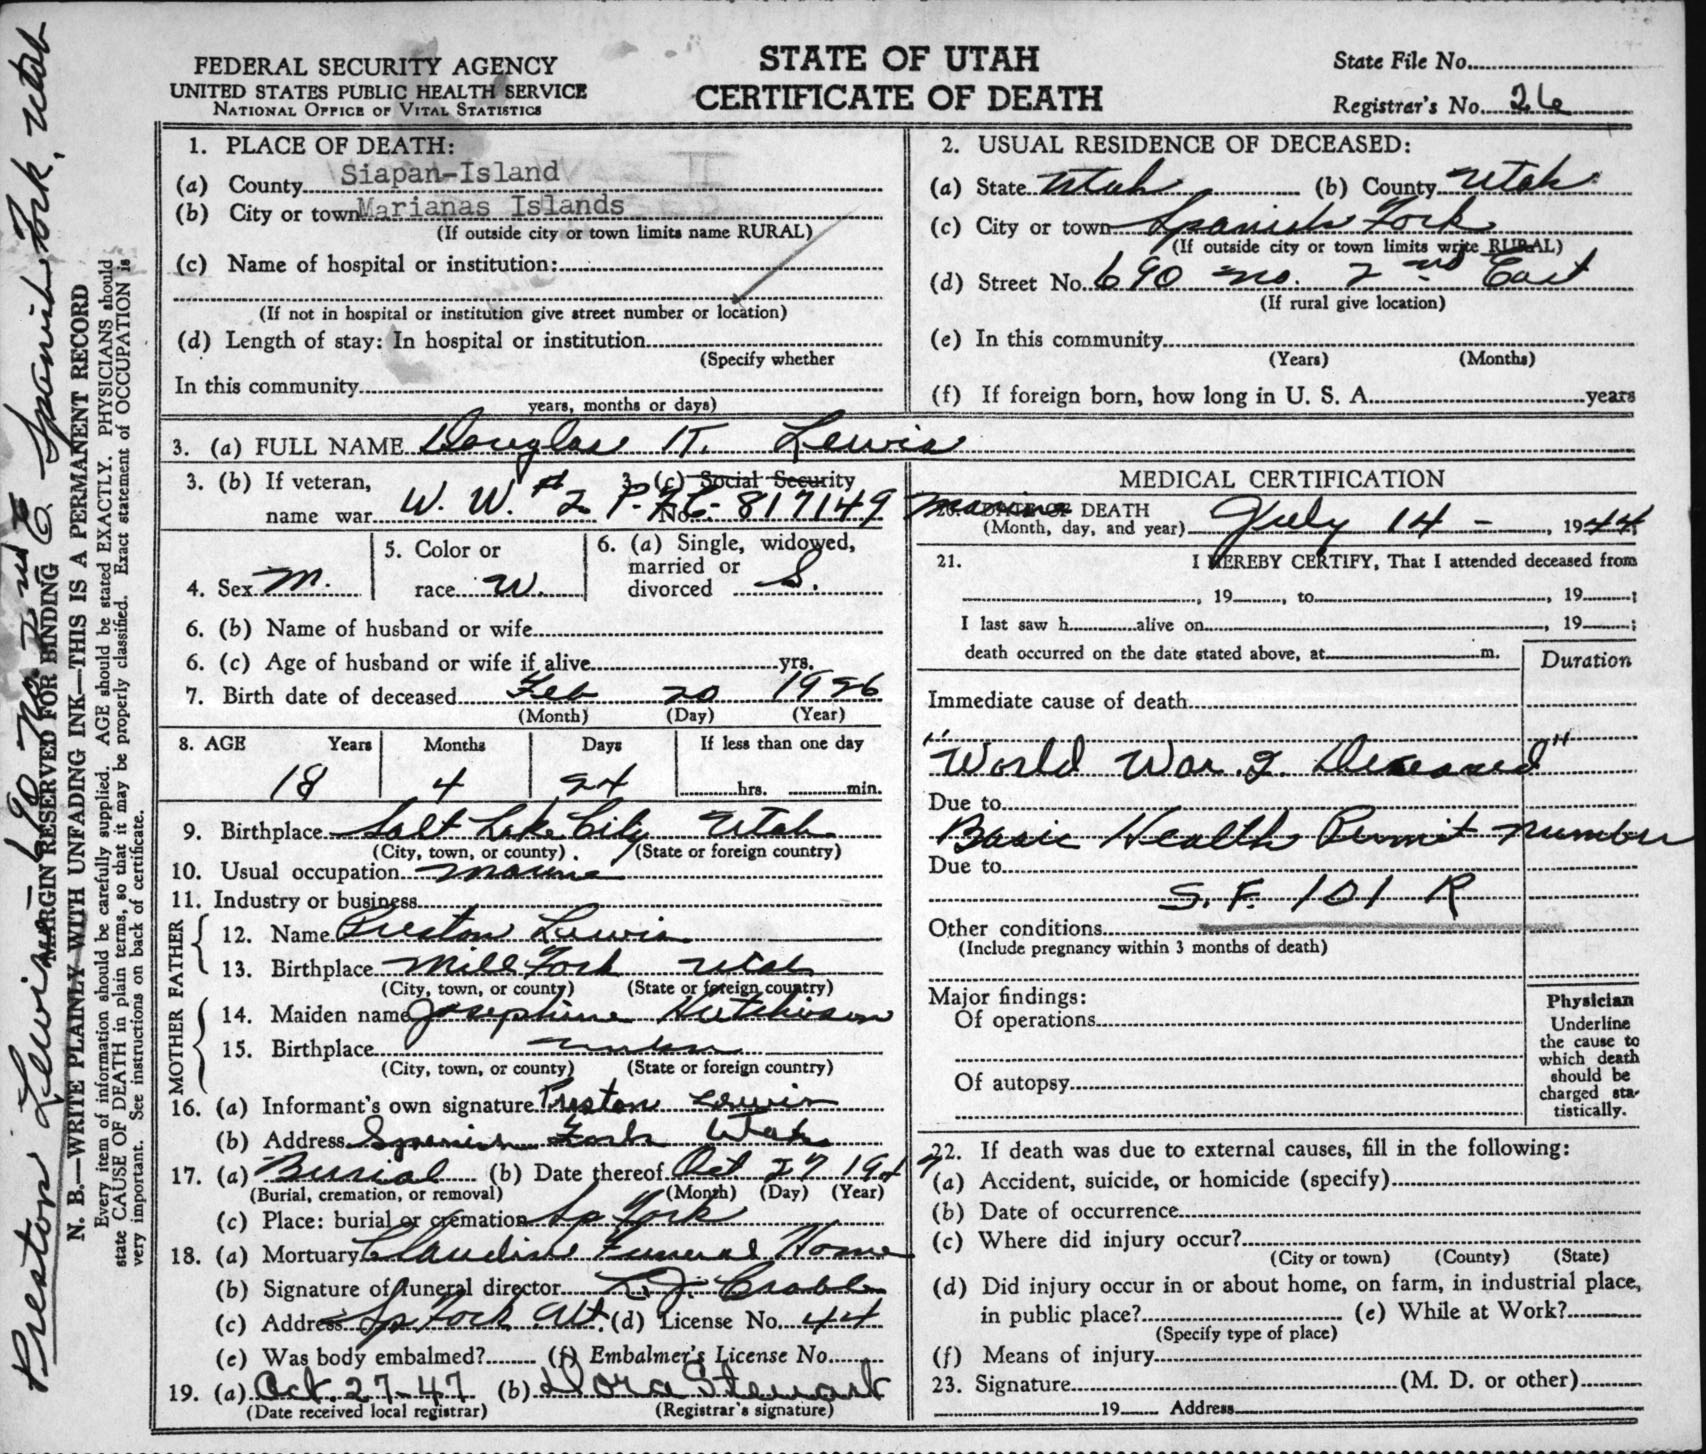 FEDERAL SECURITY AGENCY
UNITED STATES PUBLIC HEALTH SERVICE
NATIONAL OFFICE OF VITAL STATISTICS
STATE OF UTAH
CERTIFICATE OF DEATH
State File No.
Registrar's No. 26
1. PLACE OF DEATH:
(a) County Siapan-Island
(b) City or town Marianas Islands
(If outside city or town limits name RURAL)
(c) Name of hospital or institution:
(If not in hospital or institution give street number or location)
(d) Length of stay: In hospital or institution
(Specify whether
In this community
years, months or days)
2. USUAL RESIDENCE OF DECEASED:
(a) State Utah (b) County Utah
(c) City or town Spanish Fork
(If outside city or town limits write RURAL)
(d) Street No. 690 No. 2nd East
(If rural give location)
(e) In this community
(Years) (Months)
(f) If foreign born, how long in U. S. A. years
3. (a) FULL NAME Douglas K. Lewis
3. (b) If veteran,
name war W. W. #2
3. (c) Social Security
No. P.F.C. 817149 Marine
4. Sex M.
5. Color or
race W.
6. (a) Single, widowed,
married or
divorced S.
6. (b) Name of husband or wife
6. (c) Age of husband or wife if alive yrs.
7. Birth date of deceased Feb 20 1926
(Month) (Day) (Year)
8. AGE Years Months Days If less than one day
18 4 24 hrs. min.
9. Birthplace Salt Lake City Utah
(City, town, or county) (State or foreign country)
10. Usual occupation Marine
11. Industry or business
FATHER
12. Name Preston Lewis
13. Birthplace Mill Fork Utah
(City, town, or county) (State or foreign country)
MOTHER
14. Maiden name Josephine Hutchison
15. Birthplace
(City, town, or county) (State or foreign country)
16. (a) Informant's own signature Preston Lewis
(b) Address Spanish Fork Utah
17. (a) Burial (b) Date thereof Oct 27 1947
(Burial, cremation, or removal) (Month) (Day) (Year)
(c) Place: burial or cremation Sp Fork
18. (a) Mortuary Claudin Funeral Home
(b) Signature of funeral director
(c) Address Sp Fork Ut. (d) License No. 44
(e) Was body embalmed? (f) Embalmer's License No.
19. (a) Oct. 27-47 (b) Dora Stewart
(Date received local registrar) (Registrar's signature)
MEDICAL CERTIFICATION
20. DATE OF DEATH
(Month, day, and year) July 14 - , 1944;
21. I HEREBY CERTIFY, That I attended deceased from
, 19 , to , 19 ;
I last saw h alive on , 19 ;
death occurred on the date stated above, at m.
Duration
Immediate cause of death
"World War 2 Deceased"
Due to
Basic Health Permit Number
Due to
S.F. 101 R
Other conditions
(Include pregnancy within 3 months of death)
Major findings:
Of operations
Of autopsy
Physician
Underline
the cause to
which death
should be
charged sta-
tistically.
22. If death was due to external causes, fill in the following:
(a) Accident, suicide, or homicide (specify)
(b) Date of occurrence
(c) Where did injury occur?
(City or town) (County) (State)
(d) Did injury occur in or about home, on farm, in industrial place,
in public place? (e) While at Work?
(Specify type of place)
(f) Means of injury
23. Signature (M. D. or other)
19 Address
Preston Lewis - 690 No. 2nd E. Spanish Fork, Utah
MARGIN RESERVED FOR BINDING
N. B.—WRITE PLAINLY WITH UNFADING INK—THIS IS A PERMANENT RECORD
Every item of information should be carefully supplied. AGE should be stated EXACTLY. PHYSICIANS should
state CAUSE OF DEATH in plain terms, so that it may be properly classified. Exact statement of OCCUPATION is
very important. See instructions on back of certificate.